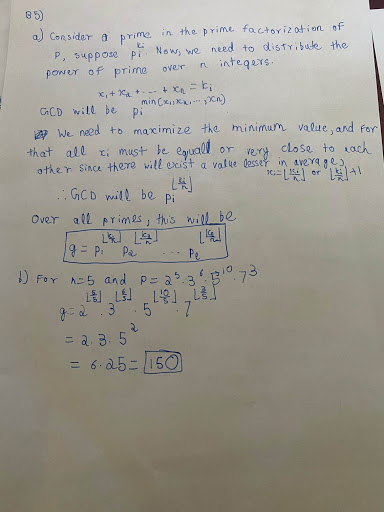 85)
a) Consider a prime in the prime factorization of
P, suppose pi^ki. Now, we need to distribute the
power of prime over n integers.
x1 + x2 + - - - + xn = ki
GCD will be pi^min(x1, x2, ..., xn)
We need to maximize the minimum value, and for
that all xi must be equall or very close to each
other since there will exist a value lesser in average,
xi = ⌊ki/n⌋ or ⌊ki/n⌋+1
∴ GCD will be pi^⌊ki/n⌋
Over all primes, this will be
g = p1^⌊k1/n⌋ p2^⌊k2/n⌋ ... pl^⌊kl/n⌋
b) For n=5 and P = 2^5 . 3^6 . 5^10 . 7^3
g = 2^⌊5/5⌋ . 3^⌊6/5⌋ . 5^⌊10/5⌋ . 7^⌊3/5⌋
= 2 . 3 . 5^2
= 6 . 25 = 150